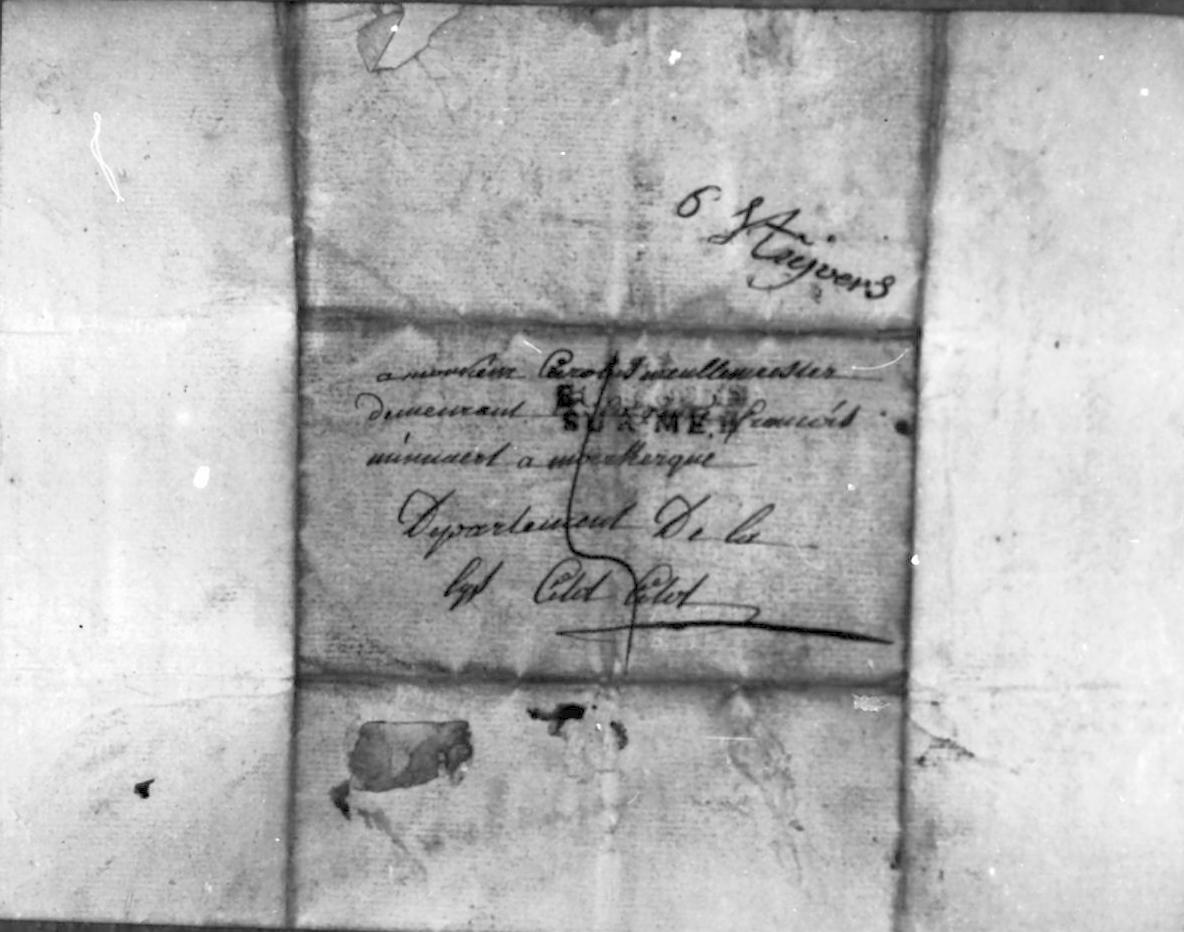 6 Stuyvers
a monsieur Carol Smeullemeester
demeurant francois
SUR ME.
minnaert a moerkerque
Departement De la
lys Citot Citot